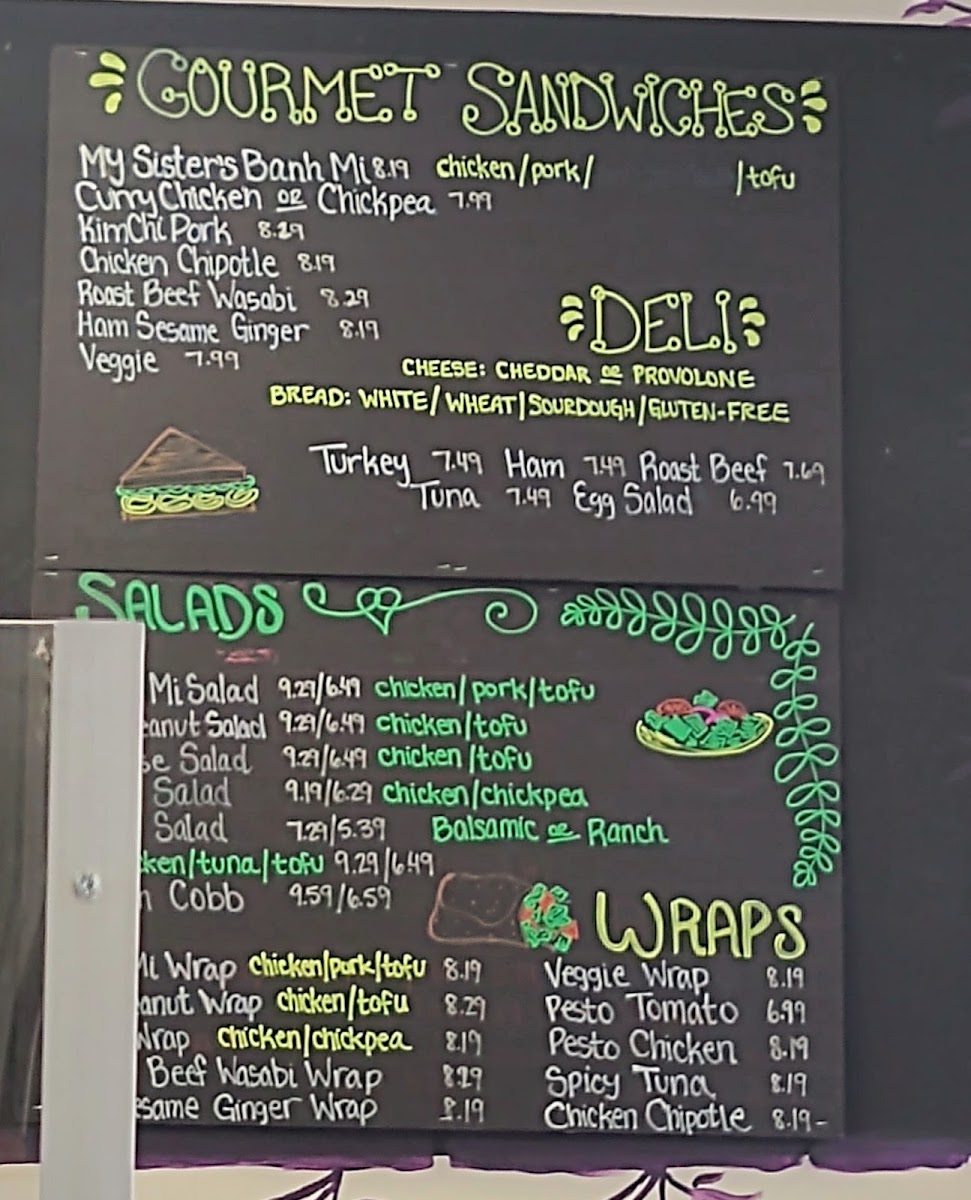 GOURMET SANDWICHES
My Sister's Banh Mi 8.19 chicken/pork/ /tofu
Curry Chicken or Chickpea 7.99
KimChi Pork 8.29
Chicken Chipotle 8.19
Roast Beef Wasabi 8.29
Ham Sesame Ginger 8.19
Veggie 7.99
DELI
CHEESE: CHEDDAR or PROVOLONE
BREAD: WHITE/ WHEAT/SOURDOUGH/GLUTEN-FREE
Turkey 7.49 Ham 7.49 Roast Beef 7.69
Tuna 7.49 Egg Salad 6.99
SALADS
Mi Salad 9.29/6.49 chicken/pork/tofu
anut Salad 9.29/6.49 chicken/tofu
se Salad 9.29/6.49 chicken/tofu
Salad 9.19/6.29 chicken/chickpea
Salad 7.29/5.39 Balsamic or Ranch
ken/tuna/tofu 9.29/6.49
Cobb 9.59/6.59
WRAPS
Mi Wrap chicken/pork/tofu 8.19
anut Wrap chicken/tofu 8.29
Wrap chicken/chickpea 8.19
Beef Wasabi Wrap 8.29
esame Ginger Wrap 8.19
Veggie Wrap 8.19
Pesto Tomato 6.99
Pesto Chicken 8.19
Spicy Tuna 8.19
Chicken Chipotle 8.19-